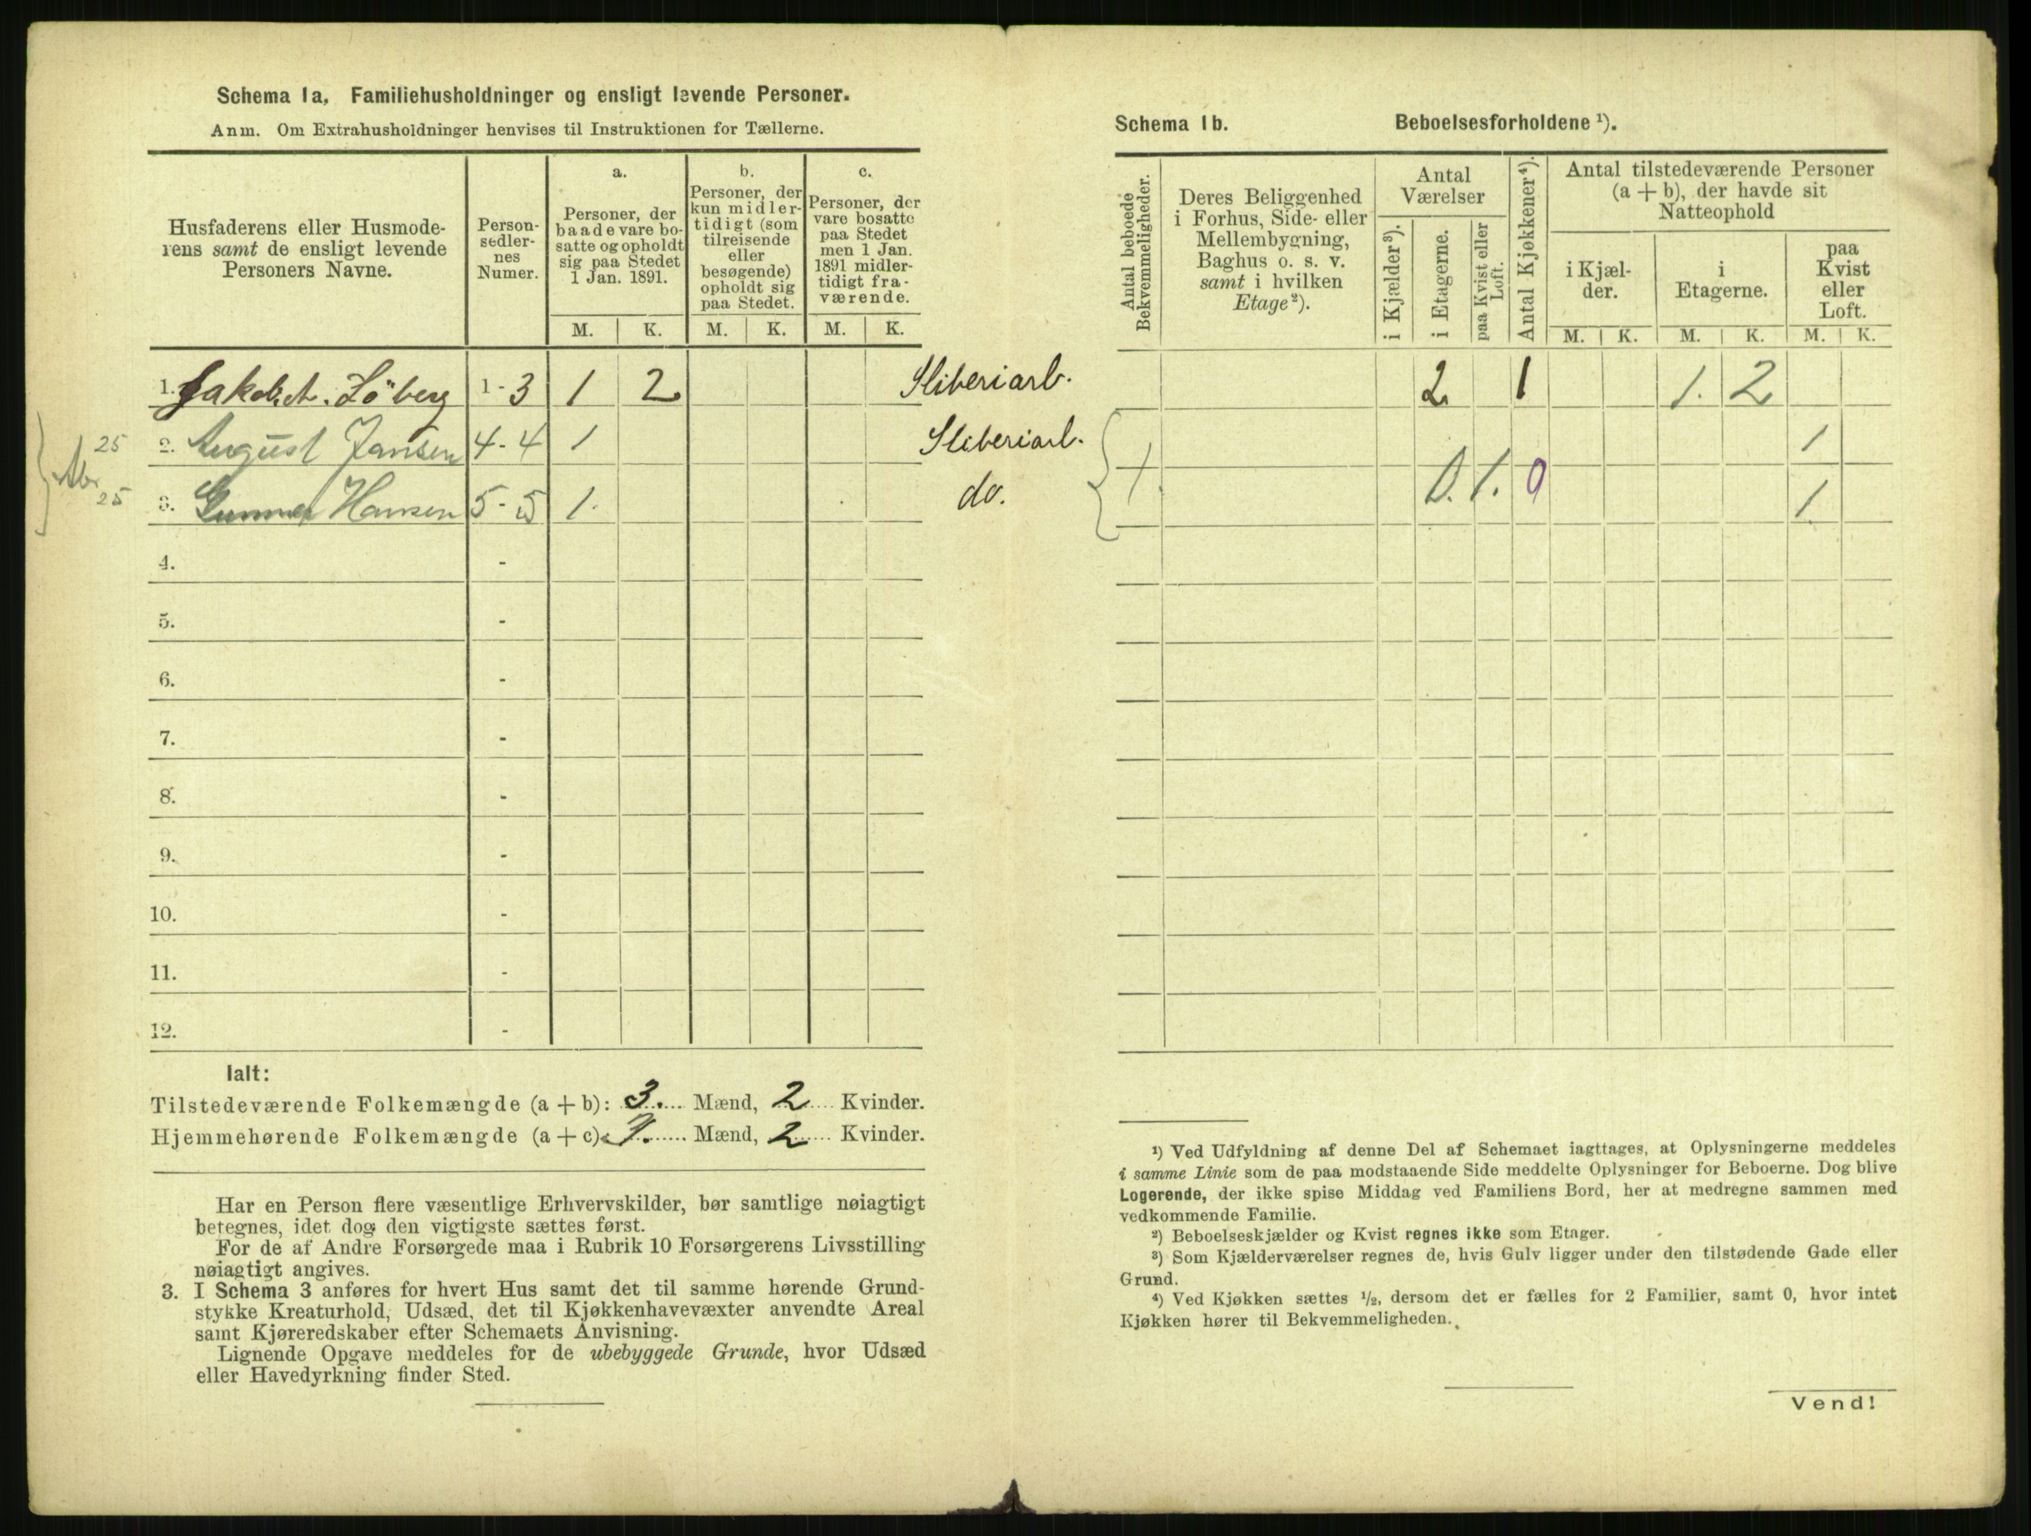 Schema 1a, Familiehusholdninger og ensligt levende Personer.
Anm. Om Extrahusholdninger henvises til Instruktionen for Tællerne.
Husfaderens eller Husmoderens samt de ensligt levende Personers Navne.
Personsedlernes Numer.
a. Personer, der baade vare bosatte og opholdt sig paa Stedet 1 Jan. 1891.
b. Personer, der kun midlertidigt (som tilreisende eller besøgende) opholdt sig paa Stedet.
c. Personer, der vare bosatte paa Stedet men 1 Jan. 1891 midlertidigt fraværende.
M. K. M. K. M. K.
1. Löberg 1-3 1 2 Sliberiarb.
25 2. August Jansen 4-4 1 Sliberiarb.
25 3. Gunner Hansen 5-5 1. do.
4. -
5. -
6. -
7. -
8. -
9. -
10. -
11. -
12. -
Ialt:
Tilstedeværende Folkemængde (a + b): 3. Mænd, 2 Kvinder.
Hjemmehørende Folkemængde (a + c): Mænd, 2 Kvinder.
Har en Person flere væsentlige Erhvervskilder, bør samtlige nøiagtigt
betegnes, idet dog den vigtigste sættes først.
For de af Andre Forsørgede maa i Rubrik 10 Forsørgerens Livsstilling
nøiagtigt angives.
3. I Schema 3 anføres for hvert Hus samt det til samme hørende Grund-
stykke Kreaturhold, Udsæd, det til Kjøkkenhavevæxter anvendte Areal
samt Kjøreredskaber efter Schemaets Anvisning.
Lignende Opgave meddeles for de ubebyggede Grunde, hvor Udsæd
eller Havedyrkning finder Sted.
Schema 1b. Beboelsesforholdene ¹).
Antal beboede Bekvemmeligheder.
Deres Beliggenhed i Forhus, Side- eller Mellembygning, Baghus o. s. v. samt i hvilken Etage²).
Antal Værelser
i Kjælder³).
i Etagerne.
paa Kvist eller Loft.
Antal Kjøkkener⁴).
Antal tilstedeværende Personer (a + b), der havde sit Natteophold
i Kjælder.
i Etagerne.
paa Kvist eller Loft.
M. K. M. K. M. K.
2 1 1. 2
1
1. 0. 1. 0 1
¹) Ved Udfyldning af denne Del af Schemaet iagttages, at Oplysningerne meddeles
i samme Linie som de paa modstaaende Side meddelte Oplysninger for Beboerne. Dog blive
Logerende, der ikke spise Middag ved Familiens Bord, her at medregne sammen med
vedkommende Familie.
²) Beboelseskjælder og Kvist regnes ikke som Etager.
³) Som Kjælderværelser regnes de, hvis Gulv ligger under den tilstødende Gade eller
Grund.
⁴) Ved Kjøkken sættes ½, dersom det er fælles for 2 Familier, samt 0, hvor intet
Kjøkken hører til Bekvemmeligheden.
Vend!